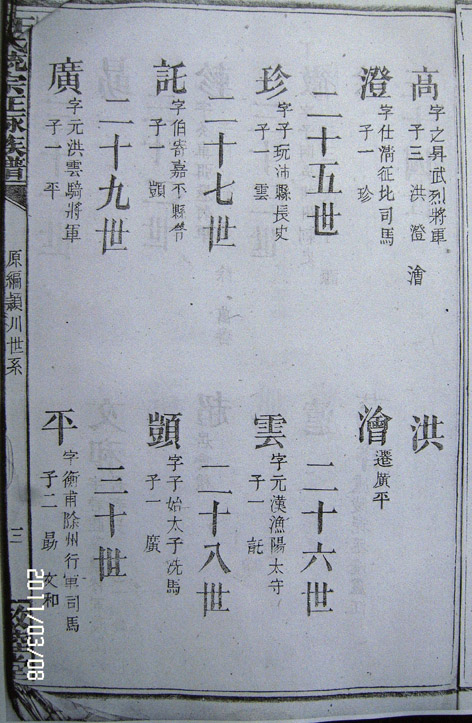 高
字之昇武烈將軍
子三 洪 澄 澮
洪
澄
字仕清征比司馬
子一 珍
澮
遷廣平
二十五世
珍
字子玩沛縣長史
子一 雲
二十六世
雲
字元漢漁陽太守
子一 託
二十七世
託
字伯寄嘉平縣
子一 顗
二十八世
顗
字子始太子洗馬
子一 廣
二十九世
廣
字元洪雲騎將軍
子一 平
三十世
平
字衡甫除州行軍司馬
子二 勗 文和
統宗正脈族譜
原編潁川世系
三
2011/03/08